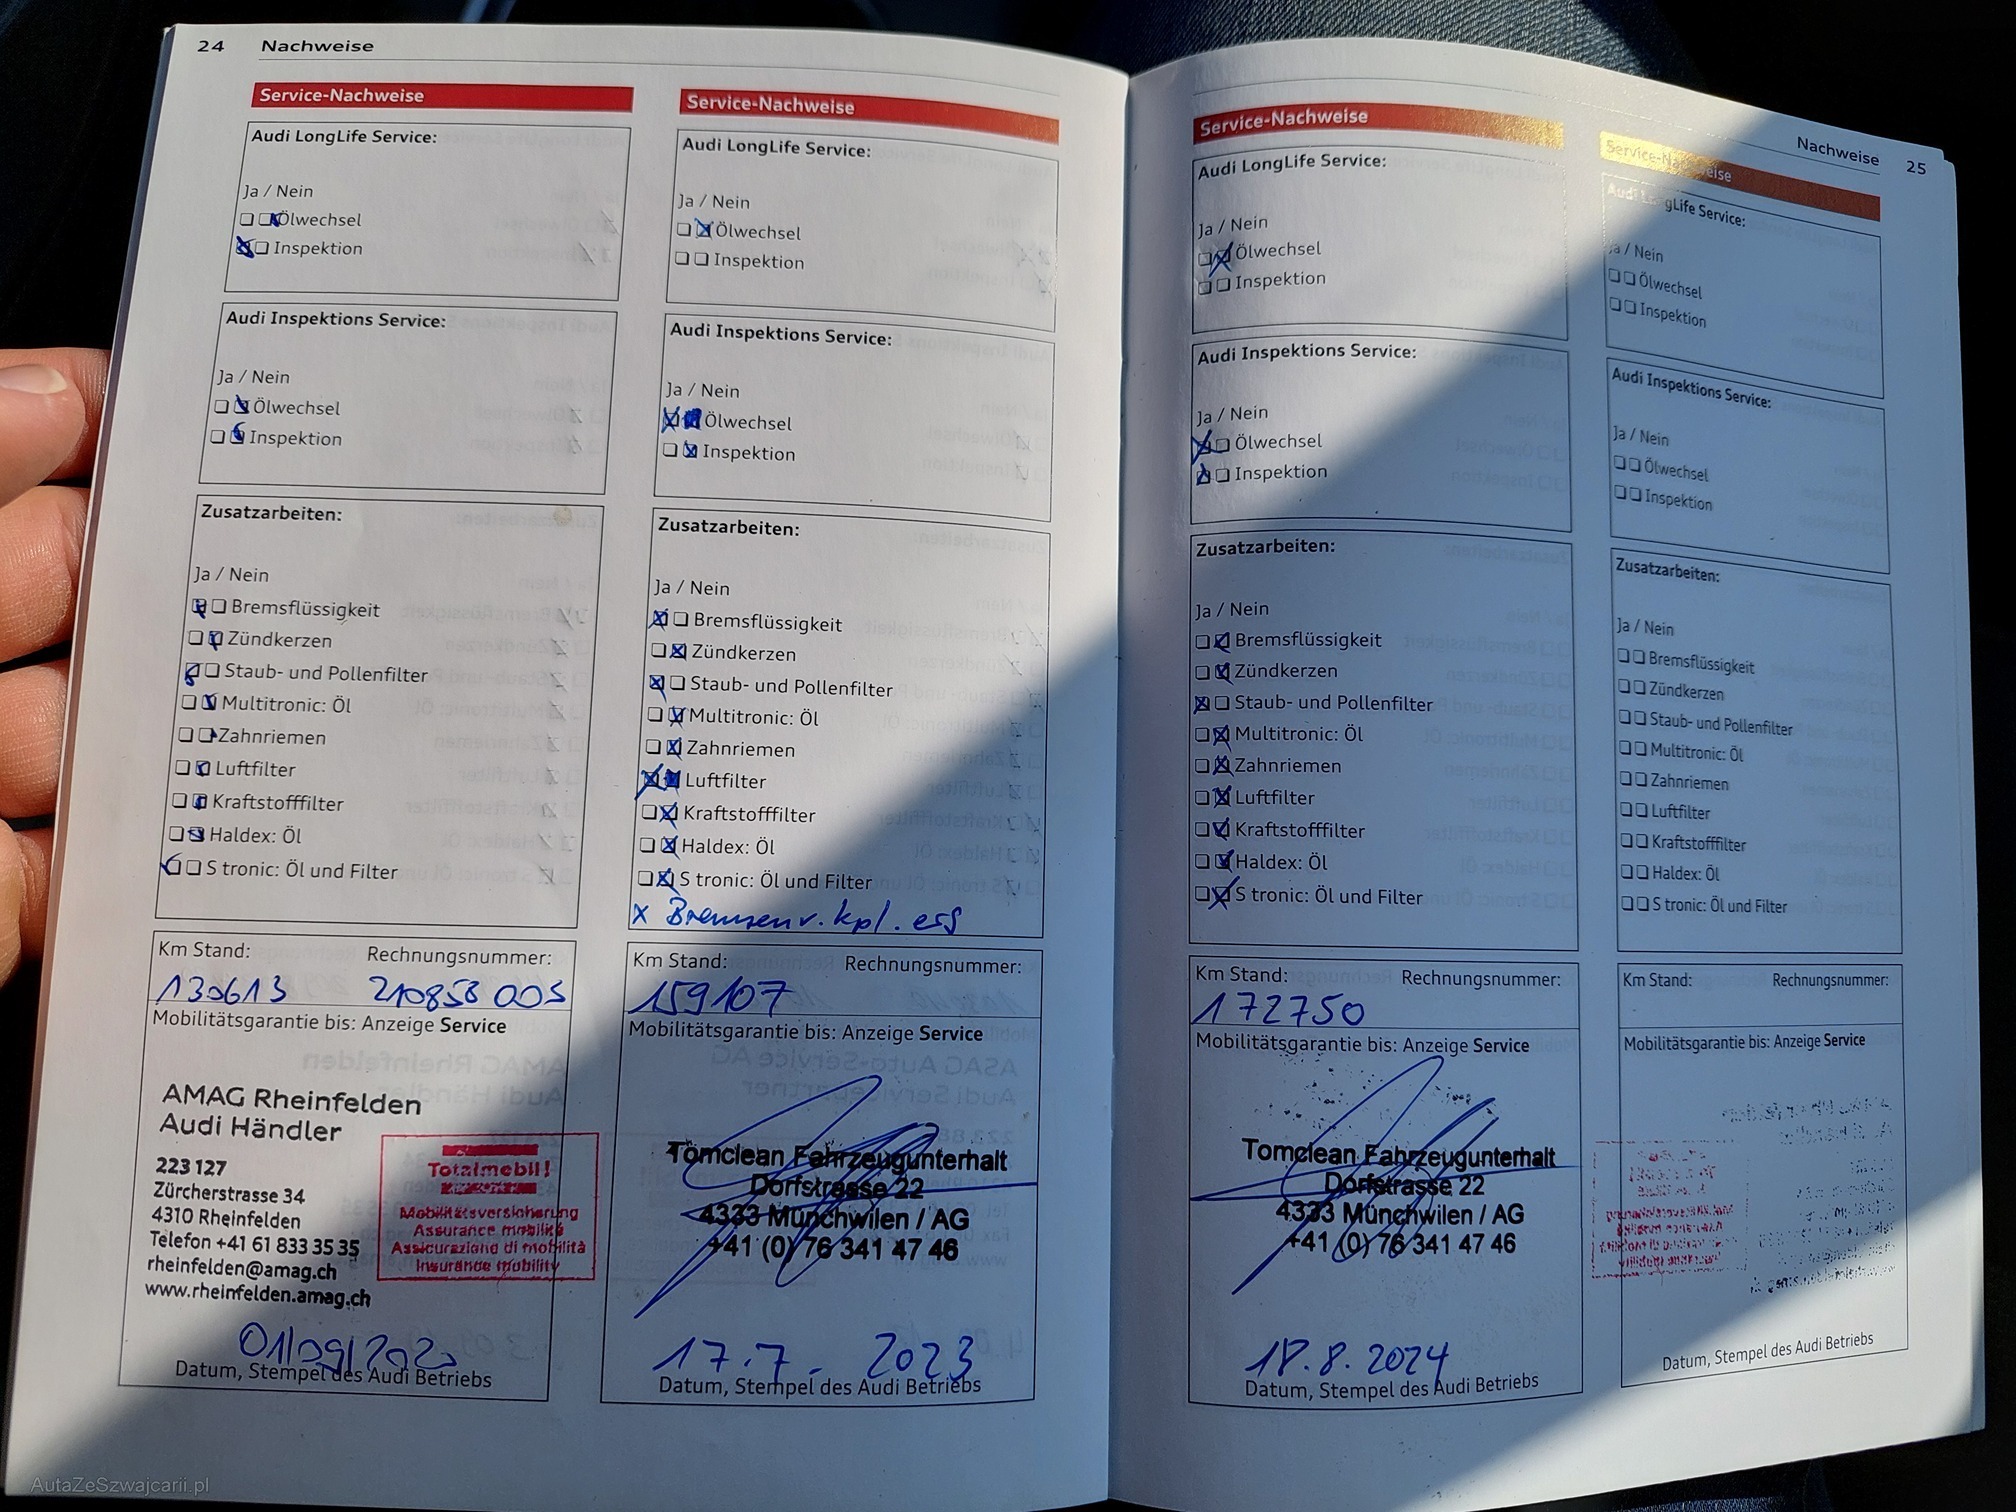 24 Nachweise
Service-Nachweise
Audi LongLife Service:
Ja / Nein
Ölwechsel
Inspektion
Audi Inspektions Service:
Ja / Nein
Ölwechsel
Inspektion
Zusatzarbeiten:
Ja / Nein
Bremsflüssigkeit
Zündkerzen
Staub- und Pollenfilter
Multitronic: Öl
Zahnriemen
Luftfilter
Kraftstofffilter
Haldex: Öl
S tronic: Öl und Filter
Km Stand: Rechnungsnummer:
130613 210858 005
Mobilitätsgarantie bis: Anzeige Service
AMAG Rheinfelden
Audi Händler
223 127
Zürcherstrasse 34
4310 Rheinfelden
Telefon +41 61 833 35 35
rheinfelden@amag.ch
www.rheinfelden.amag.ch
Totalmobil!
Mobilitätsversicherung
Assurance mobilité
Assicurazione di mobilità
Insurance mobility
Datum, Stempel des Audi Betriebs
Service-Nachweise
Audi LongLife Service:
Ja / Nein
Ölwechsel
Inspektion
Audi Inspektions Service:
Ja / Nein
Ölwechsel
Inspektion
Zusatzarbeiten:
Ja / Nein
Bremsflüssigkeit
Zündkerzen
Staub- und Pollenfilter
Multitronic: Öl
Zahnriemen
Luftfilter
Kraftstofffilter
Haldex: Öl
S tronic: Öl und Filter
x Bremsen v. kpl. ers
Km Stand: Rechnungsnummer:
159107
Mobilitätsgarantie bis: Anzeige Service
Tomclean Fahrzeugunterhalt
Dorfstrasse 22
4333 Münchwilen / AG
+41 (0) 76 341 47 46
17.7. 2023
Datum, Stempel des Audi Betriebs
Nachweise 25
Service-Nachweise
Audi LongLife Service:
Ja / Nein
Ölwechsel
Inspektion
Audi Inspektions Service:
Ja / Nein
Ölwechsel
Inspektion
Zusatzarbeiten:
Ja / Nein
Bremsflüssigkeit
Zündkerzen
Staub- und Pollenfilter
Multitronic: Öl
Zahnriemen
Luftfilter
Kraftstofffilter
Haldex: Öl
S tronic: Öl und Filter
Km Stand: Rechnungsnummer:
172750
Mobilitätsgarantie bis: Anzeige Service
Tomclean Fahrzeugunterhalt
Dorfstrasse 22
4333 Münchwilen / AG
+41 (0) 76 341 47 46
18.8.2024
Datum, Stempel des Audi Betriebs
Service-Nachweise
Audi LongLife Service:
Ja / Nein
Ölwechsel
Inspektion
Audi Inspektions Service:
Ja / Nein
Ölwechsel
Inspektion
Zusatzarbeiten:
Ja / Nein
Bremsflüssigkeit
Zündkerzen
Staub- und Pollenfilter
Multitronic: Öl
Zahnriemen
Luftfilter
Kraftstofffilter
Haldex: Öl
S tronic: Öl und Filter
Km Stand: Rechnungsnummer:
Mobilitätsgarantie bis: Anzeige Service
Datum, Stempel des Audi Betriebs
AutaZeSzwajcarii.pl